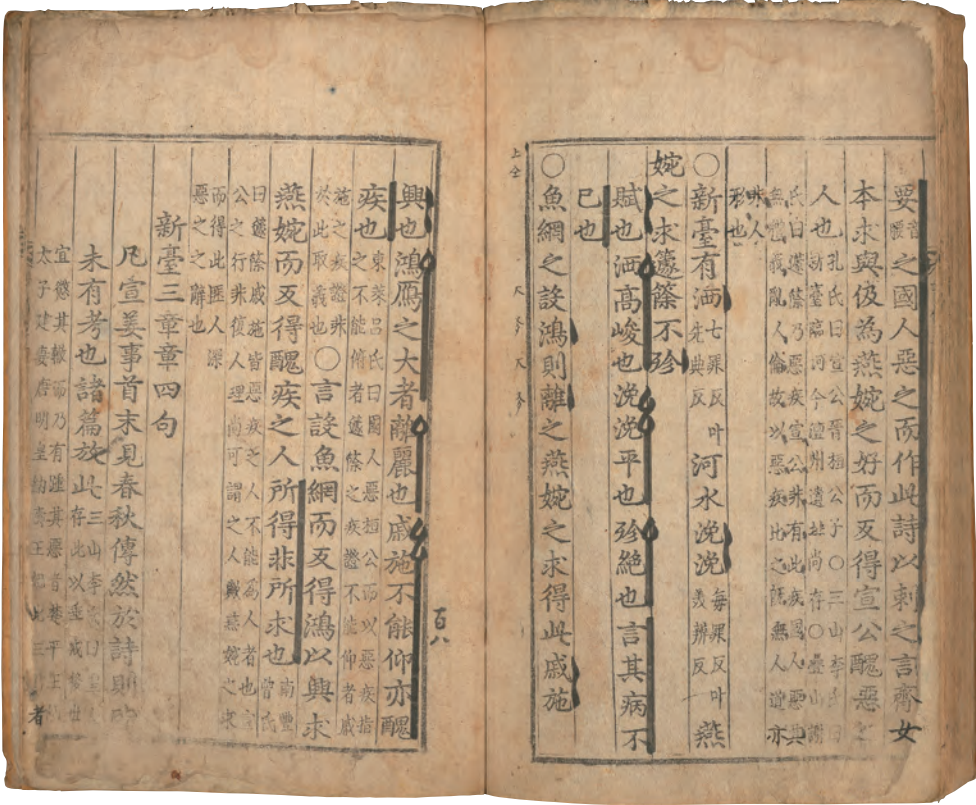 要音腰之國人惡之而作此詩以刺之言齊女
本求與伋為燕婉之好而反得宣公醜惡之
人也孔氏曰宣公晉桓公子○三山李氏曰
新臺臨河今澶州遺址尚存○疊山謝
氏曰籧篨乃惡疾宣公非有此疾國人惡其
無禮義亂人倫故以惡疾比之旣無人道亦
非人
形也
○新臺有洒七罪反叶先典反河水浼浼每罪反叶美辨反燕
婉之求籧篨不殄
賦也洒高峻也浼浼平也殄絶也言其病不
已也
○魚網之設鴻則離之燕婉之求得此戚施
上仝
興也鴻鴈之大者離麗也戚施不能仰亦醜
疾也東萊呂氏曰國人惡桓公而以惡疾指
之不能俯者籧篨之疾證不能仰者戚
施之疾證非
於此取義也○言設魚網而反得鴻以興求
燕婉而反得醜疾之人所得非所求也南豐曾氏
曰籧篨戚施皆惡疾之人不能為人者也宣
公之行非復人理尚可謂之人歟燕婉之求
而得此匪人深
惡之之辭也
新臺三章章四句
凡宣姜事首末見春秋傳然於詩則皆
未有考也諸篇放此三山李氏曰聖人
存此以垂戒後世
宜懲其轍而乃有踵其惡者楚平王納
太子建妻唐明皇納壽王妃此三君者
百八